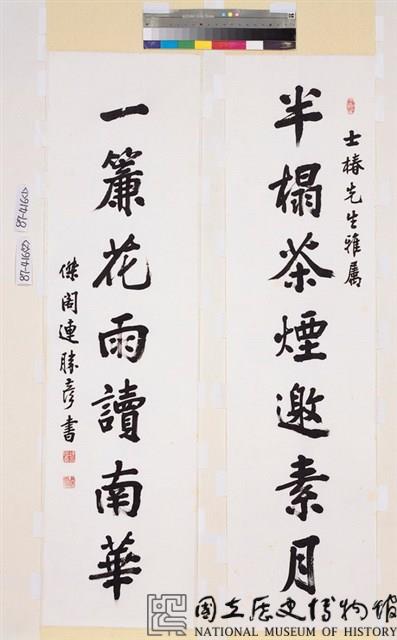 半榻茶煙邀素月
士椿先生雅屬
一簾花雨讀南華
傑閣連勝彥書
87-416(1)
87-416(2)
國立歷史博物館
NATIONAL MUSEUM OF HISTORY